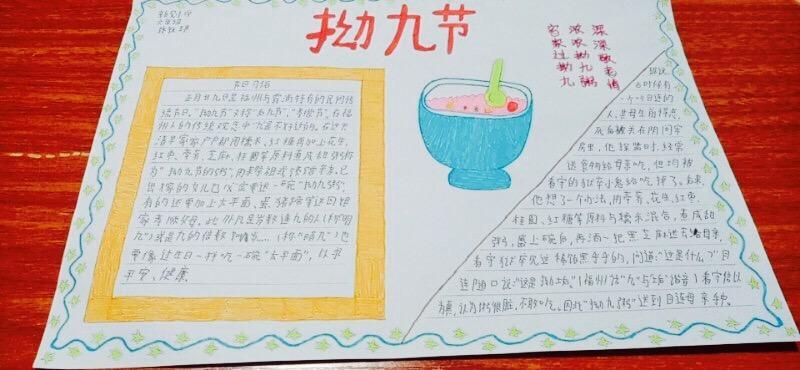 六年级
拗九节
深深敬老情
浓浓拗九粥
家家过拗九
节日习俗
正月廿九日是福州与旁尚特有的民间传
统节日。"拗九节"又称"后九节"、"孝顺节"。在福
州人的传统观念中"九"是不好的。在这天
清早家家户户都用糯米、红糖再加上花生、
红枣、荸荠、芝麻、桂圆等原料煮成甜粥称
为"拗九节的粥",用来祭祖或馈赠亲友。已
出嫁的女儿也必定要送一碗"拗九粥",
有的还要加上太平面、蛋、猪蹄等送回娘
家孝顺父母。此外凡是岁数逢九的人(称"明
九")或是九的倍数,十八岁……(称"暗九")也
要像过生日一样吃一碗"太平面",以求
平安、健康
据说
古时候有
一个叫目连的
人,其母生前得罪,
死后被关在阴间牢
房里,他探监时,经常
送食物给母亲吃,但均被
看守的狱卒小鬼给吃掉了。后来,
他想了一个办法,用荸荠、花生、红枣、
桂圆、红糖等原料与糯米混合,煮成甜
粥,盛上碗后,再洒一把黑芝麻送给母亲,
看守狱卒见这稀饭黑乎乎的,问道:"这是什么?"目
连随口说:"这是拗垢。"(福州话"九"与"垢"谐音)看守信以
为真,认为粥很脏,不敢吃。因此"拗九粥"送到目连母亲手中。